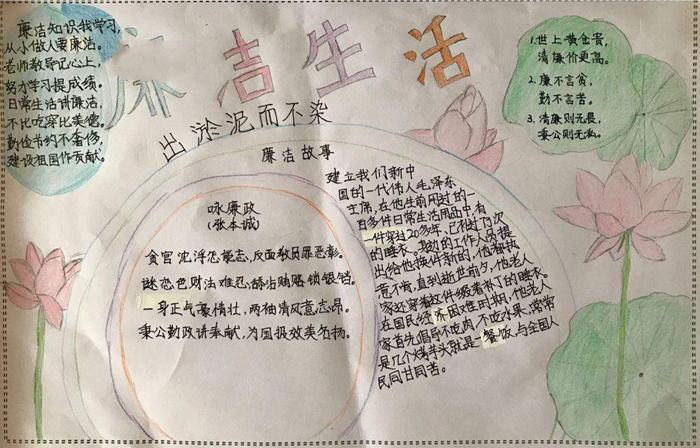 廉洁知识我学习,
从小做人要廉洁。
老师教导记心上,
努力学习提成绩。
日常生活讲廉洁,
不比吃穿比美德。
勤俭节约不奢侈,
建设祖国作贡献。
洁生活
出淤泥而不染
1.世上黄金贵,
清廉价更高。
2.廉不言贫,
勤不言苦。
3.清廉则无畏,
秉公则无私。
廉洁故事
咏廉政
(张本城)
贪官沉浮忘遗志,反面教员罪恶彰。
迷恋色财法难忍,
贿赂锁银铛。
一身正气豪情壮,两袖清风意志昂。
秉公勤政讲奉献,为国报效美名扬。
建立我们新中
国的一代伟人毛泽东
主席,在他生前用过的一
百多件日常生活用品中,有
一件穿过20多年、已补过
次
的睡衣。
的工作人员提
出给他换件新的,他都执
意不肯,直到逝世前夕,他老人
家还穿着这件缀着补丁的睡衣。
在国民经济困难时期,他老人
家首先倡导不吃肉、不吃水果,常常
是几个烤芋头就是一餐饭,与全国人
民同甘同苦。